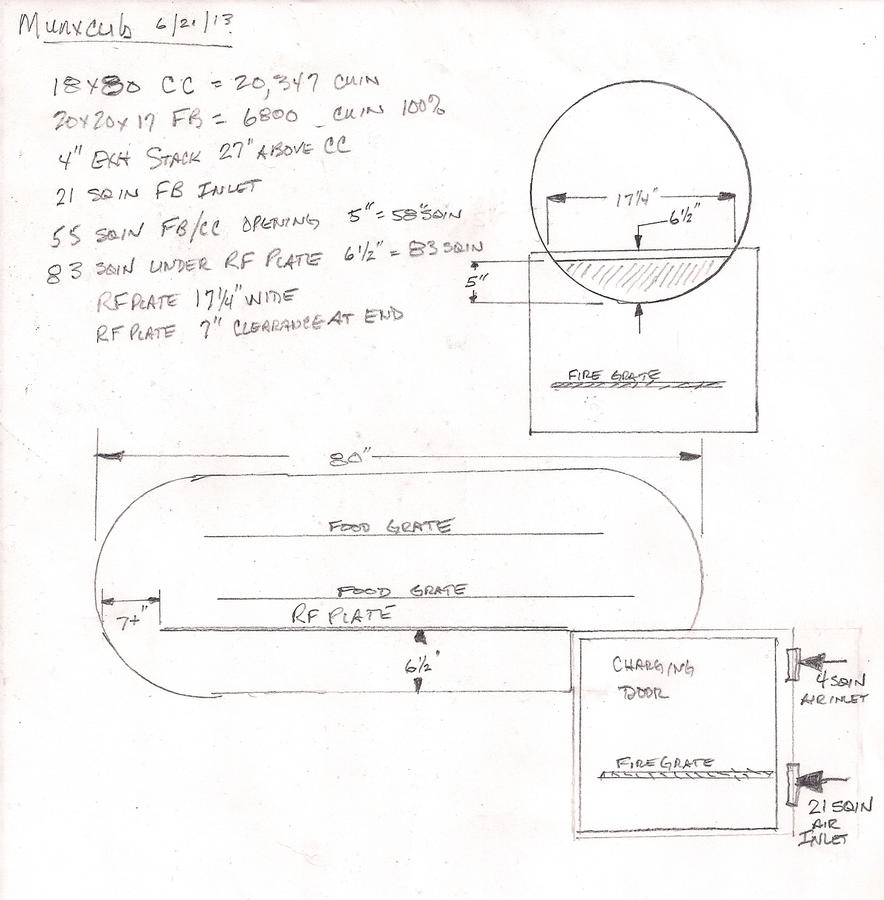 Munxcub 6/21/13
18x80 CC = 20,347 CUIN
20x20x17 FB = 6800 CUIN 100%
4" EXH STACK 27" ABOVE CC
21 SQIN FB INLET
55 SQIN FB/CC OPENING 5" = 58 SQIN
83 SQIN UNDER RF PLATE 6½" = 83 SQIN
RF PLATE 17¼" WIDE
RF PLATE 7" CLEARANCE AT END
17¼"
6½"
5"
FIRE GRATE
80"
FOOD GRATE
FOOD GRATE
RF PLATE
7+"
6½"
CHARGING
DOOR
4 SQIN
AIR INLET
FIRE GRATE
21 SQIN
AIR
INLET